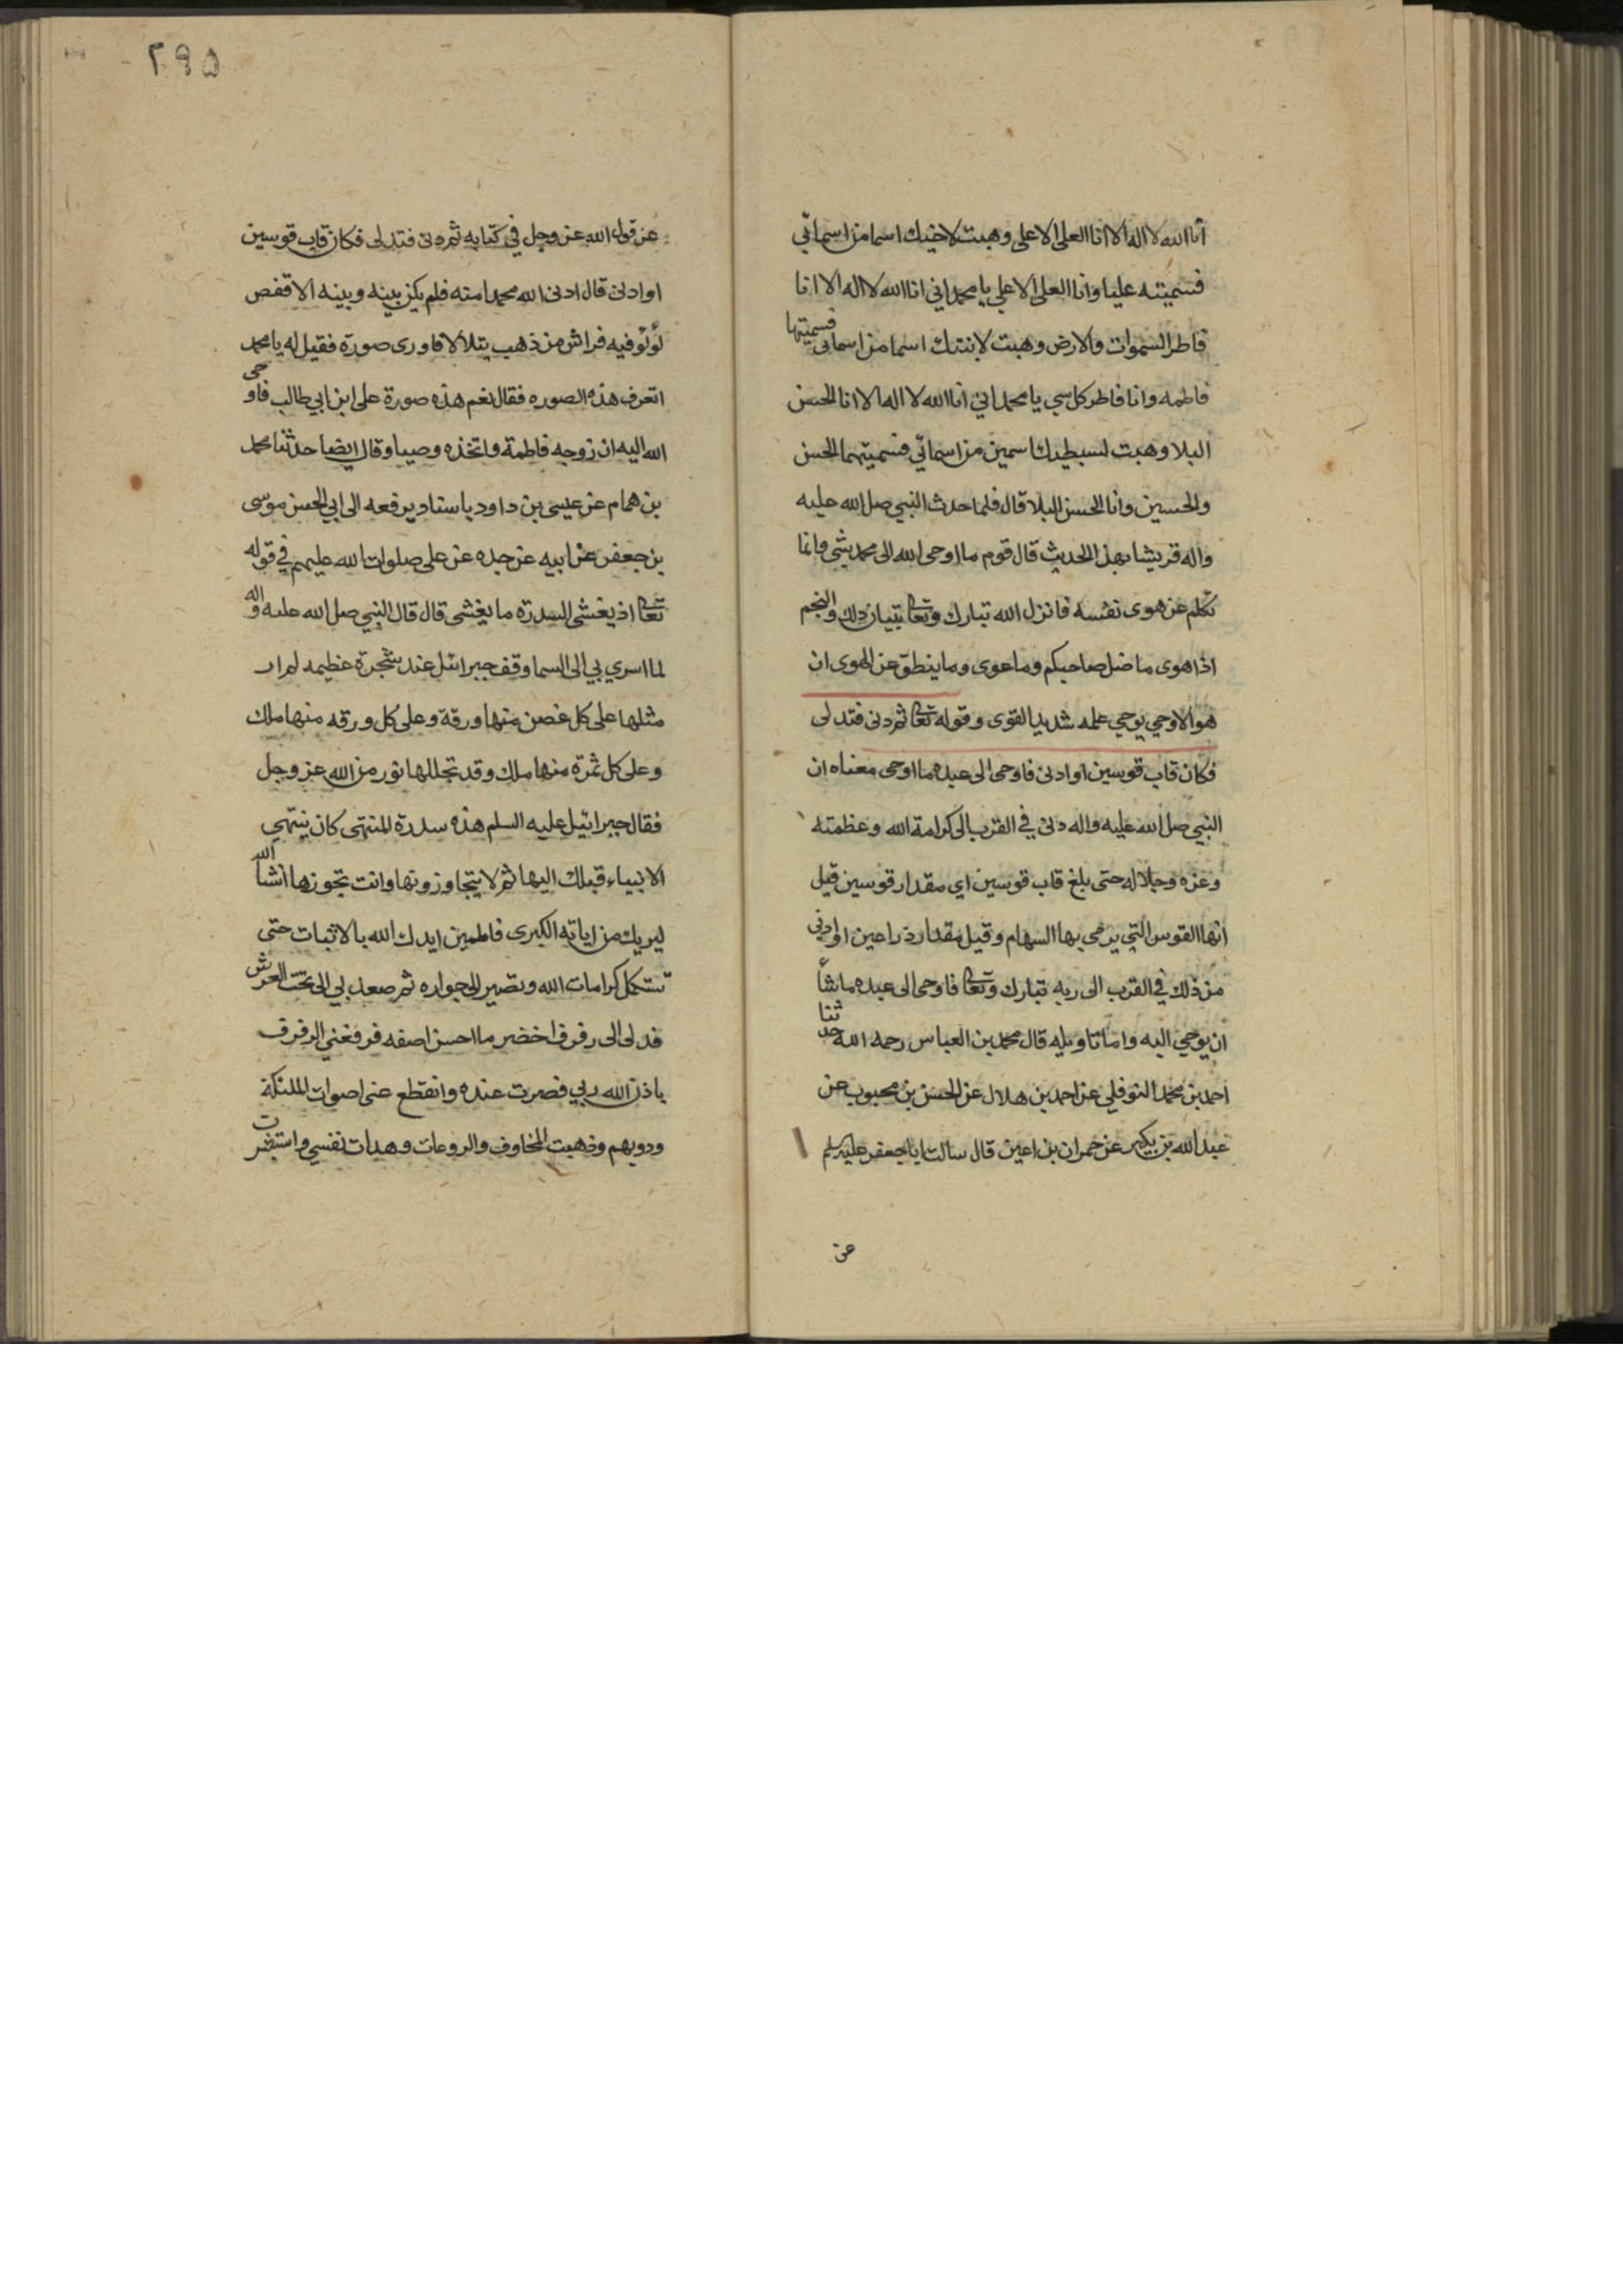 انا الله لا اله الا انا العلى الاعلى وهبت لاخيك اسما من اسمائي
فسميته عليا وانا العلى الاعلى يا محمد اني انا الله لا اله الا انا
فاطر السموات والارض وهبت لابنتك اسما من اسمائى فسميتها
فاطمه وانا فاطر كل شي يا محمد اني انا الله لا اله الا انا الحسن
البلا وهبت لسبطيك اسمين من اسمائي فسميتهما الحسن
والحسين وانا الحسن البلا قال فلما حدث النبي صلى الله عليه
واله قريشا بهذا الحديث قال قوم ما اوحى الله الى محمد بشي وانما
تكلم عن هوى نفسه فانزل الله تبارك وتعا تبيان ذلك والنجم
اذا هوى ما ضل صاحبكم وما غوى وما ينطق عن الهوى ان
هو الا وحي يوحي علمه شديد القوى وقوله تعا ثم دنى فتدلى
فكان قاب قوسين او ادنى فاوحى الى عبده ما اوحى معناه ان
النبي صلى الله عليه واله دنى في القرب الى كرامة الله وعظمته
وعزه وجلاله حتى بلغ قاب قوسين اي مقدار قوسين قيل
انها القوس التي يرمى بها السهام وقيل مقدار ذراعين او ادنى
من ذلك في القرب الى ربه تبارك وتعا فاوحى الى عبده ما شأ
ان يوحي اليه واما تاويله قال محمد بن العباس رحمه الله حدثنا
احمد بن محمد النوفلي عن احمد بن هلال عن الحسن بن محبوب عن
عبد الله بن بكير عن حمران بن اعين قال سالت ابا جعفر عليه السلم
عن
۲۹۵
عن قول الله عز وجل في كتابه ثم دنى فتدلى فكان قاب قوسين
او ادنى قال ادنى الله محمدا منه فلم يكن بينه وبينه الا قفص
لؤلؤ فيه فراش من ذهب يتلألأ فاورى صورة فقيل له يا محمد
اتعرف هذه الصوره فقال نعم هذه صورة على ابن ابي طالب فاوحى
الله اليه ان زوجه فاطمة واتخذه وصيا وقال ايضا حدثنا محمد
بن همام عن عيسى بن داود باسناد يرفعه الى ابي الحسن موسى
بن جعفر عن ابيه عن جده عن على صلوات الله عليهم في قوله
تعا اذ يغشى السدرة ما يغشى قال قال النبي صلى الله عليه واله
لما اسري بي الى السما وقف جبرائيل عند شجرة عظيمه لم ار
مثلها على كل غصن منها ورقة وعلى كل ورقه منها ملك
وعلى كل ثمرة منها ملك وقد تجللها نور من الله عز وجل
فقال جبرائيل عليه السلم هذه سدرة المنتهى كان ينتهي
الانبياء قبلك اليها ثم لا يتجاوزونها وانت تجوزها انشأ الله
ليريك من اياته الكبرى فاطمين ايدك الله بالاثبات حتى
تستكمل كرامات الله وتصير الى جواره ثم صعد بي الى تحت العرش
فدلى الى رفرف اخضر ما احسن اصفه فرفعني الرفرف
باذن الله ربي فصرت عنده وانقطع عنى اصوات الملئكة
ودويهم وذهبت المخاوف والروعات وهدات نفسي واستبشرت